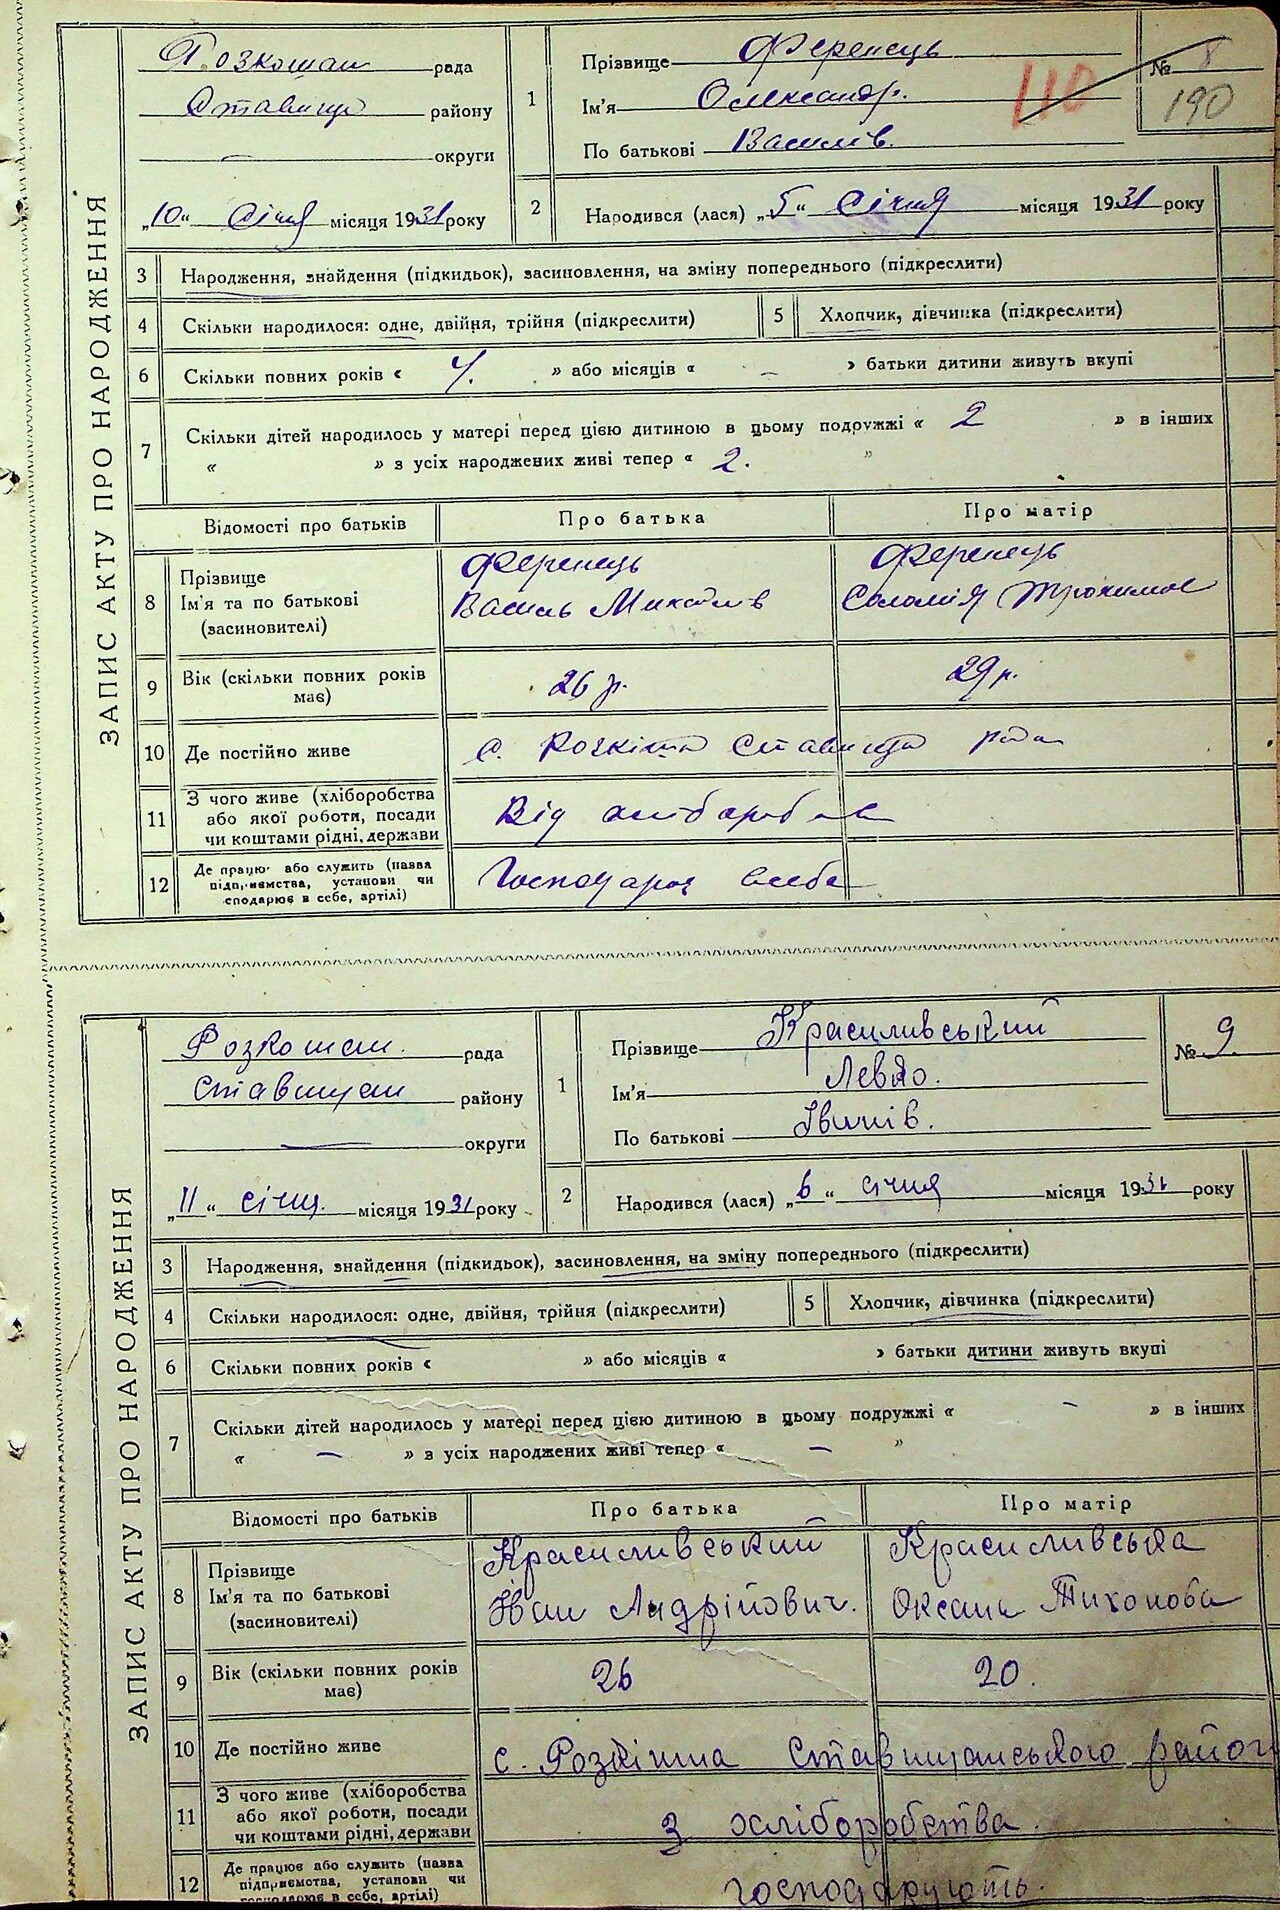 ЗАПИС АКТУ ПРО НАРОДЖЕННЯ
Розкошан рада
Ставищ району
— округи
„10“ Січня місяця 1931 року
1
Прізвище Ференець
Ім'я Олександр.
По батькові Василів.
110
№ 8
190
2
Народився (лася) „5“ Січня місяця 1931 року
3 Народження, знайдення (підкидьок), засиновлення, на зміну попереднього (підкреслити)
4 Скільки народилося: одне, двійня, трійня (підкреслити)
5 Хлопчик, дівчинка (підкреслити)
6 Скільки повних років « 4. » або місяців « – » батьки дитини живуть вкупі
7 Скільки дітей народилось у матері перед цією дитиною в цьому подружжі « 2 » в інших
« » з усіх народжених живі тепер « 2. »
Відомості про батьків Про батька Про матір
8 Прізвище
Ім'я та по батькові
(засиновителі)
Ференець
Василь
Ференець
Соломія Трохимов
9 Вік (скільки повних років
має)
26 р. 29 р.
10 Де постійно живе
с.
11 З чого живе (хліборобства
або якої роботи, посади
чи коштами рідні, держави
Від
12 Де працю або служить (назва
підприємства, установи чи
сподарює в себе, артілі)
ЗАПИС АКТУ ПРО НАРОДЖЕННЯ
Розкошан. рада
Ставищан району
— округи
„11“ січня. місяця 1931 року
1
Прізвище Красиливський
Ім'я Левко.
По батькові Іванів.
№ 9.
2
Народився (лася) „6“ січня місяця 1931 року
3 Народження, знайдення (підкидьок), засиновлення, на зміну попереднього (підкреслити)
4 Скільки народилося: одне, двійня, трійня (підкреслити)
5 Хлопчик, дівчинка (підкреслити)
6 Скільки повних років « » або місяців « » батьки дитини живуть вкупі
7 Скільки дітей народилось у матері перед цією дитиною в цьому подружжі « – » в інших
« – » з усіх народжених живі тепер « – »
Відомості про батьків Про батька Про матір
8 Прізвище
Ім'я та по батькові
(засиновителі)
Красиливський
Іван Андрійович.
Красиливська
Оксана Тихонова
9 Вік (скільки повних років
має)
26 20.
10 Де постійно живе
с. Розкішна Ставищанського район
11 З чого живе (хліборобства
або якої роботи, посади
чи коштами рідні, держави
З хліборобства.
12 Де працює або служить (назва
підприємства, установи чи
господарює в себе, артілі)
господарують.